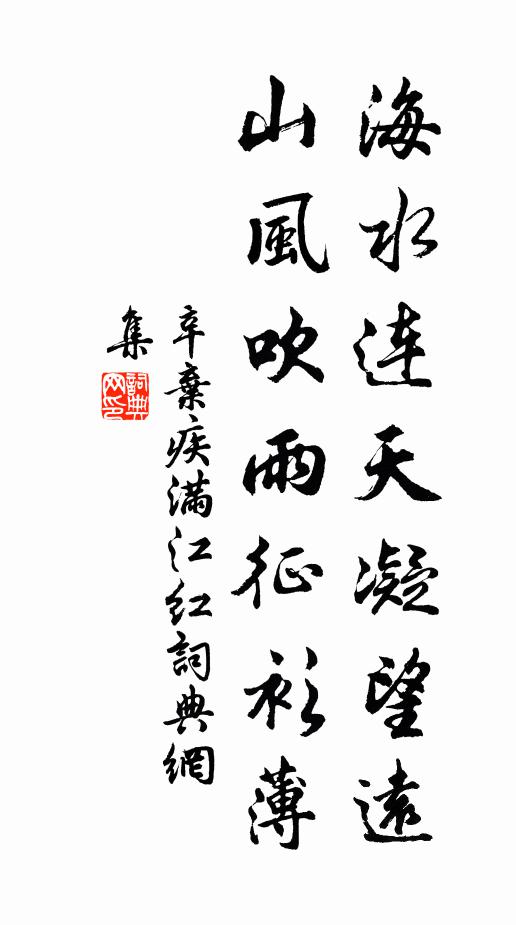 海水连天凝望遠
山風吹雨征衫薄
辛棄疾滿江红詞典網
集
詞典
网印